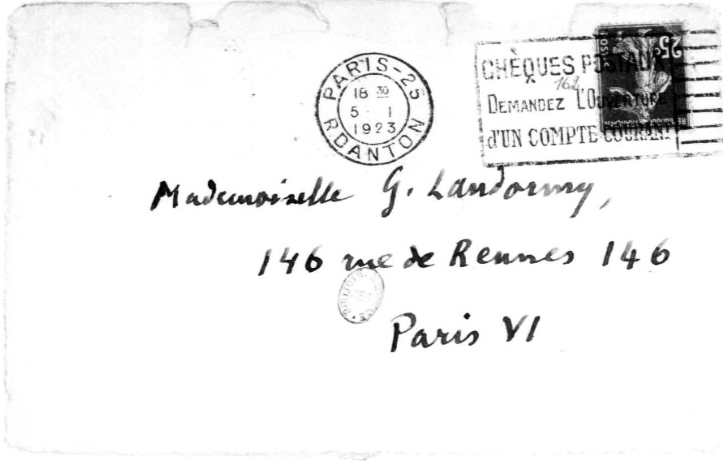 PARIS-25
18 30
5 - 1
1923
R DANTON
CHÈQUES POSTAUX
DEMANDEZ L'OUVERTURE
d'UN COMPTE COURANT
25c
Mademoiselle G. Landormy,
146 rue de Rennes 146
Paris VI